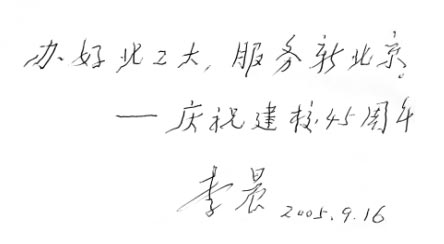 办好北工大,服务新北京。
——庆祝建校45周年
李晨 2005.9.16